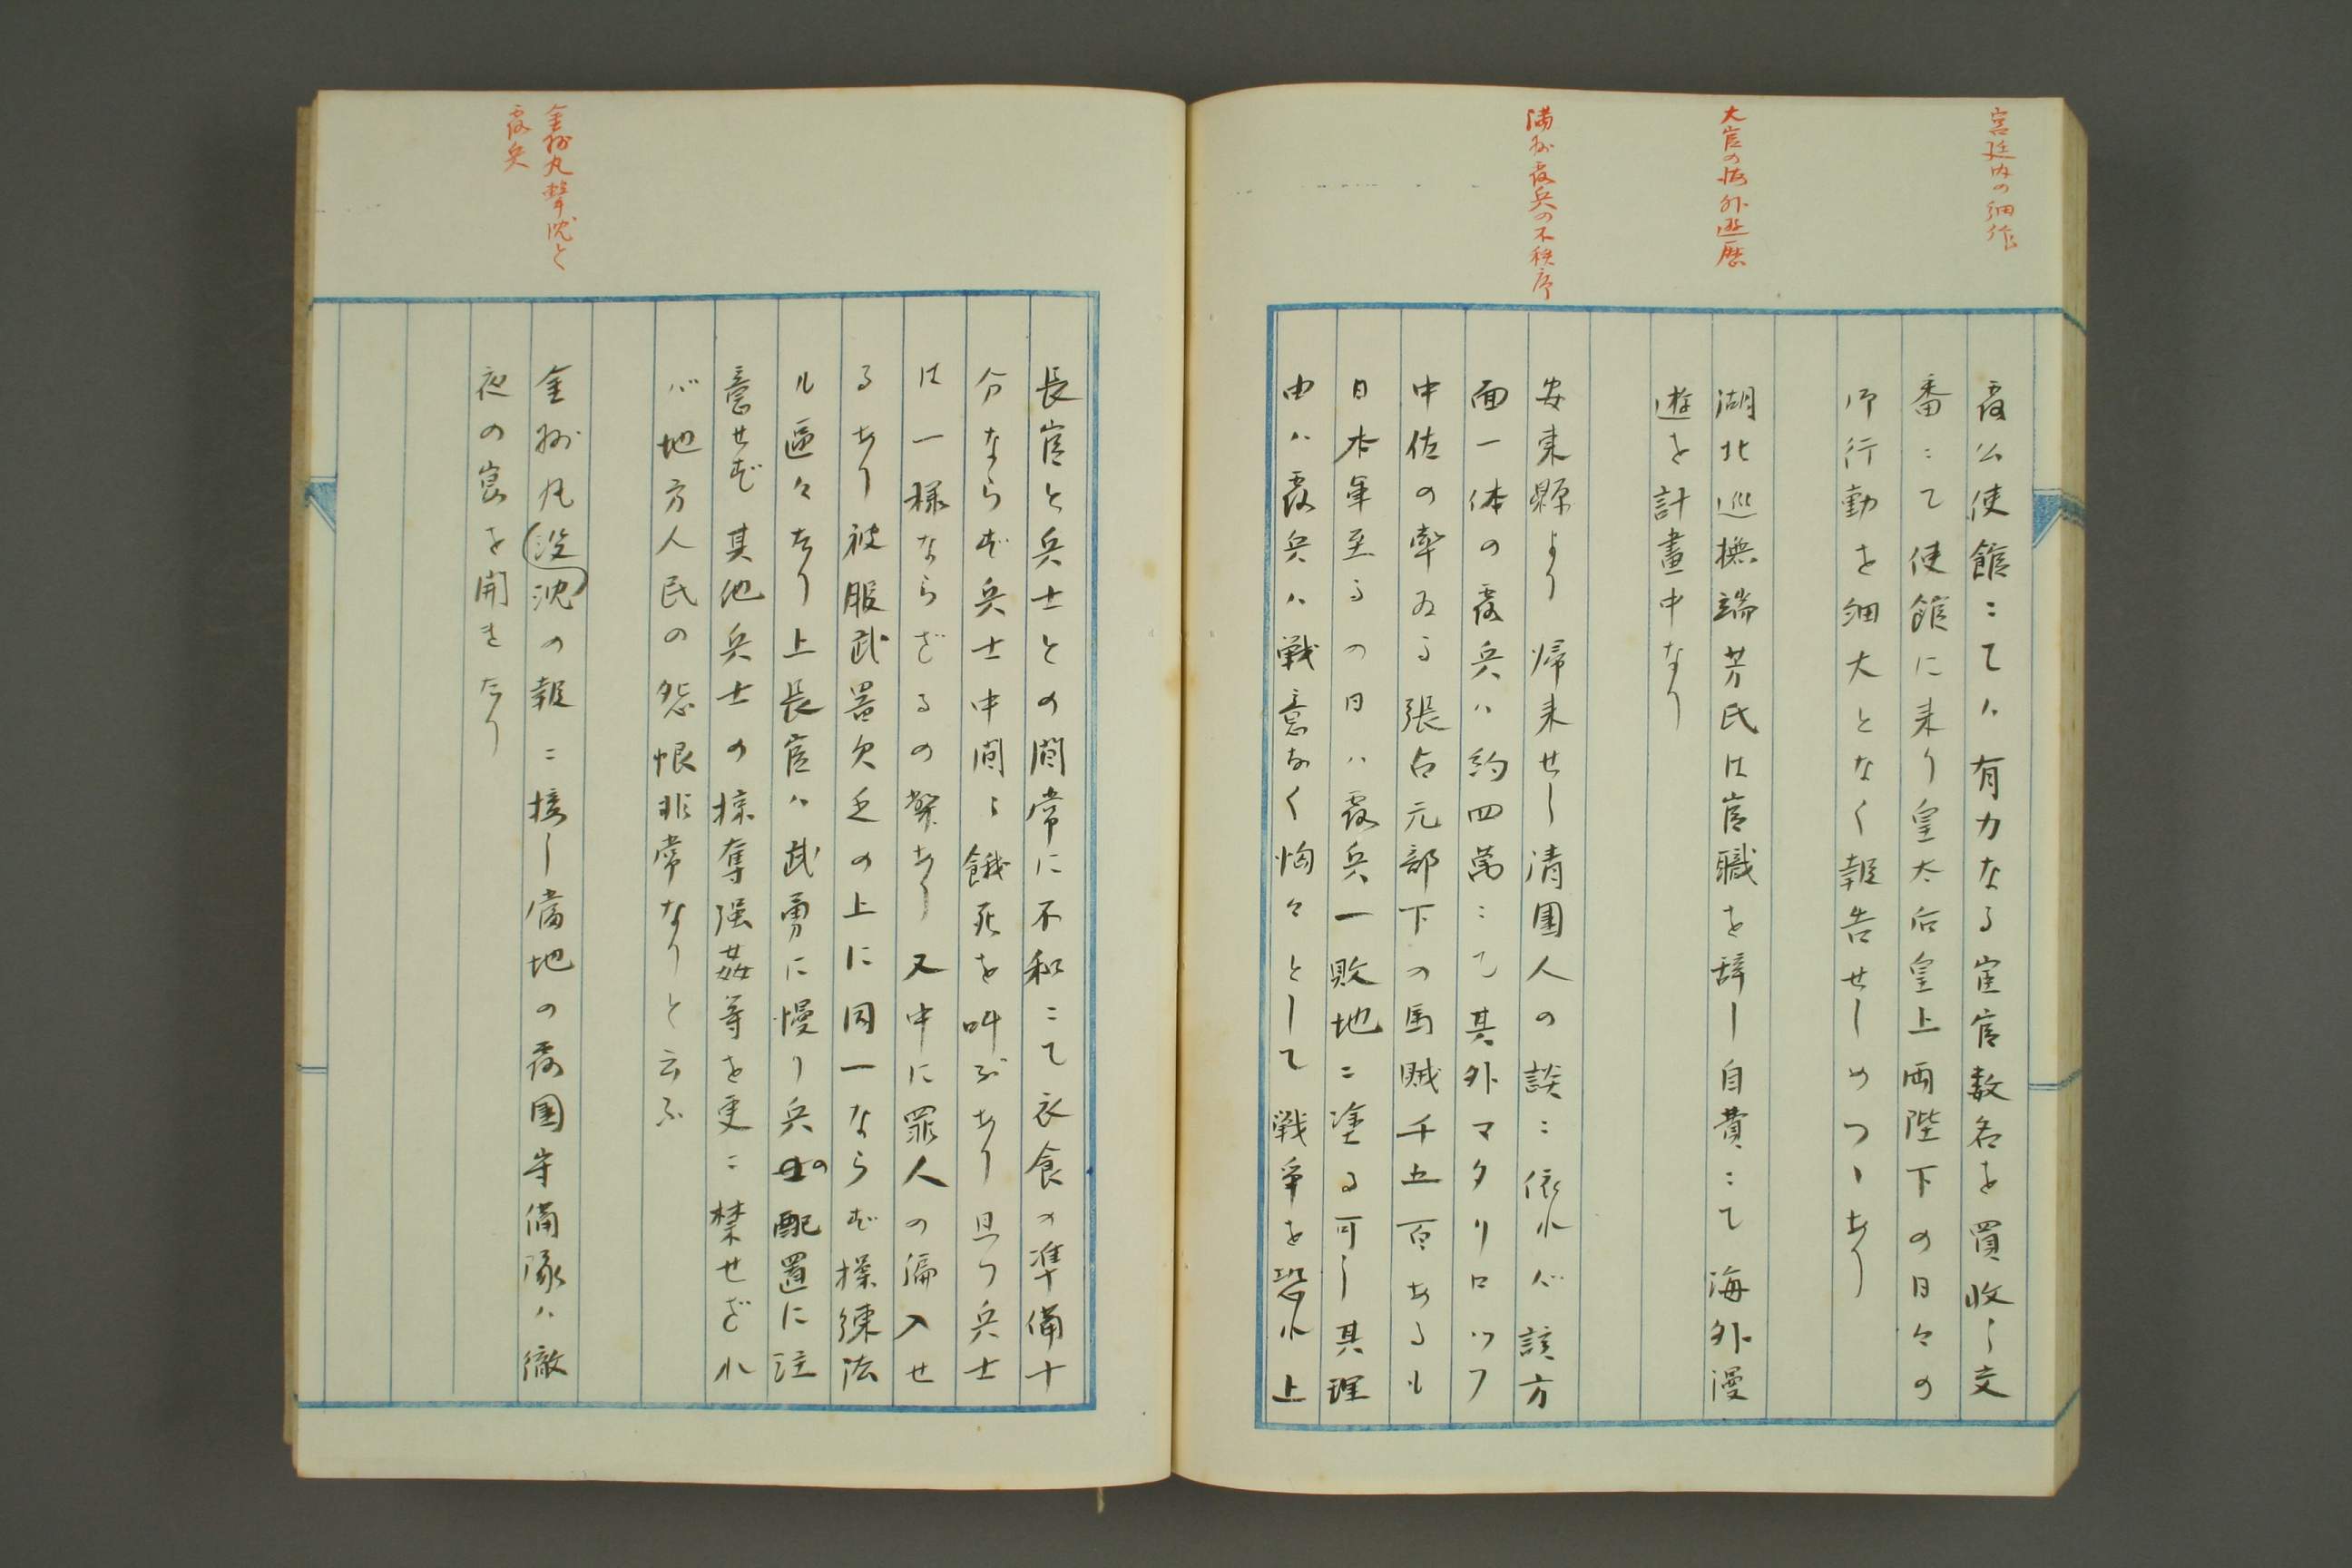 宮廷内の細作
露公使館ニてハ有力なる宦官数名を買收し交
番ニて使館に来り皇太后皇上両陛下の日々の
御行動を細大となく報告せしめつゝあり
大官の海外遊歴
湖北巡撫端芳氏は官職を辞し自費ニて海外漫
遊を計畫中なり
満洲露兵の不秩序
安東縣より帰来せし清国人の談ニ依れバ該方
面一体の露兵ハ約四萬ニて其外マタリロッフ
中佐の率ゐる張占元部下の馬賊千五百あるも
日本軍至るの日ハ露兵一敗地ニ塗る可し其理
由ハ露兵ハ戦意なく恟々として戦争を恐れ上
長官と兵士との間常に不和ニて衣食の準備十
分ならず兵士中間々餓死を叫ぶあり且つ兵士
は一様ならざるの弊あり又中に罪人の編入せ
るあり被服武器欠乏の上に同一ならず操練法
ル區々なり上長官ハ武勇に慢り兵士の配置に注
意せず其他兵士の掠奪强姦等を更ニ禁せざれ
バ地方人民の怨恨非常なりと云ふ
金州丸撃沈と
露兵
金州丸沈没の報ニ接し當地の露国守備隊ハ徹
夜の宴を開きたり